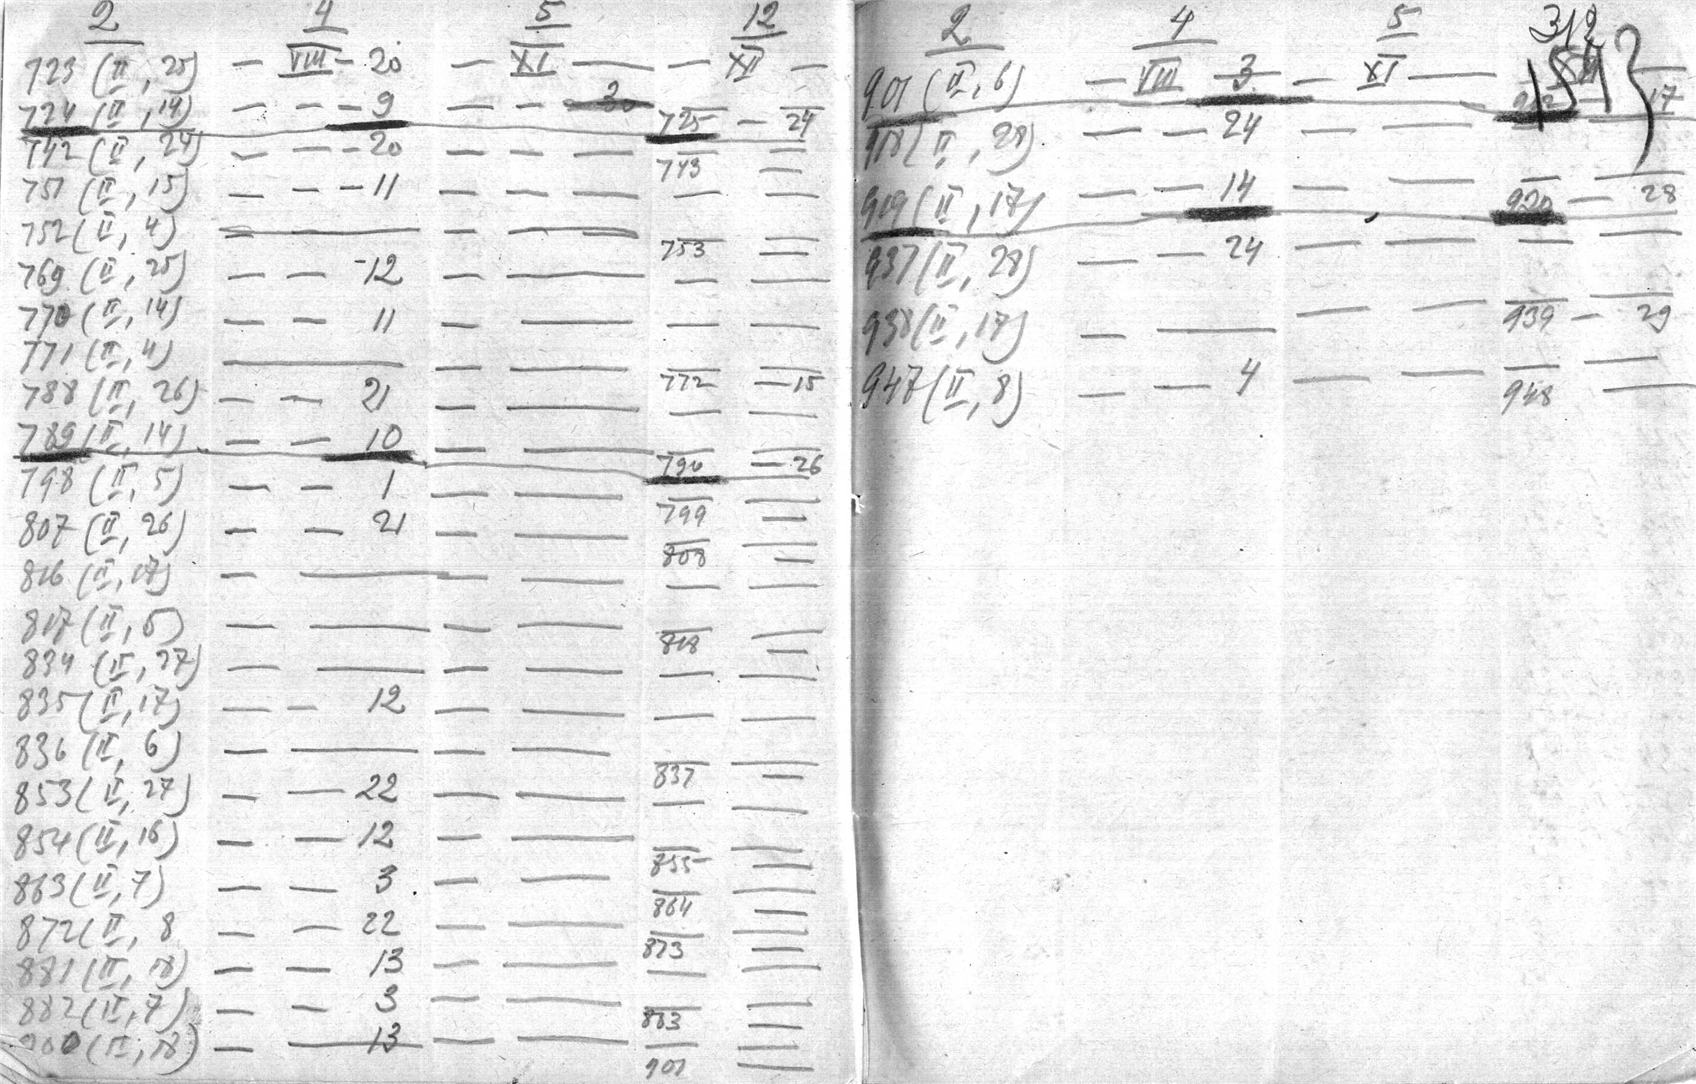 2 4 5 12
723 (II, 25) — VIII — 20 — XI — — XI —
724 (II, 14) — — — 9 — — 725 — 24
742 (II, 24) — — — 20 — — — 743 —
751 (II, 15) — — — 11 — — — — —
752 (II, 4) — — — — — 753 —
769 (II, 25) — — 12 — — — —
770 (II, 14) — — 11 — — — —
771 (II, 4) — — — 772 — 15
788 (II, 26) — — 21 — — — —
789 (II, 14) — — 10 — — 790 — 26
798 (II, 5) — — 1 — — 799 —
807 (II, 26) — — 21 — — 808 —
816 (II, 17) — — — — — —
817 (II, 5) — — — — 818 —
834 (II, 27) — — — — — —
835 (II, 17) — — 12 — — — —
836 (II, 6) — — — — 837 —
853 (II, 27) — — 22 — — — —
854 (II, 16) — — 12 — — 855 —
863 (II, 7) — — 3 — — 864 —
872 (II, 8 — — 22 — — 873 —
881 (II, 18) — — 13 — — — —
882 (II, 7) — — 3 — — 883 —
900 (II, 18) — — 13 — — 901 —
2 4 5 312
901 (II, 6) — VIII 3 — XI — 17
918 (II, 28) — — 24 — — — —
919 (II, 17) — — 14 — — 920 — 28
937 (II, 28) — — 24 — — — —
938 (II, 17) — — — — 939 — 29
947 (II, 8) — — 4 — — 948 —